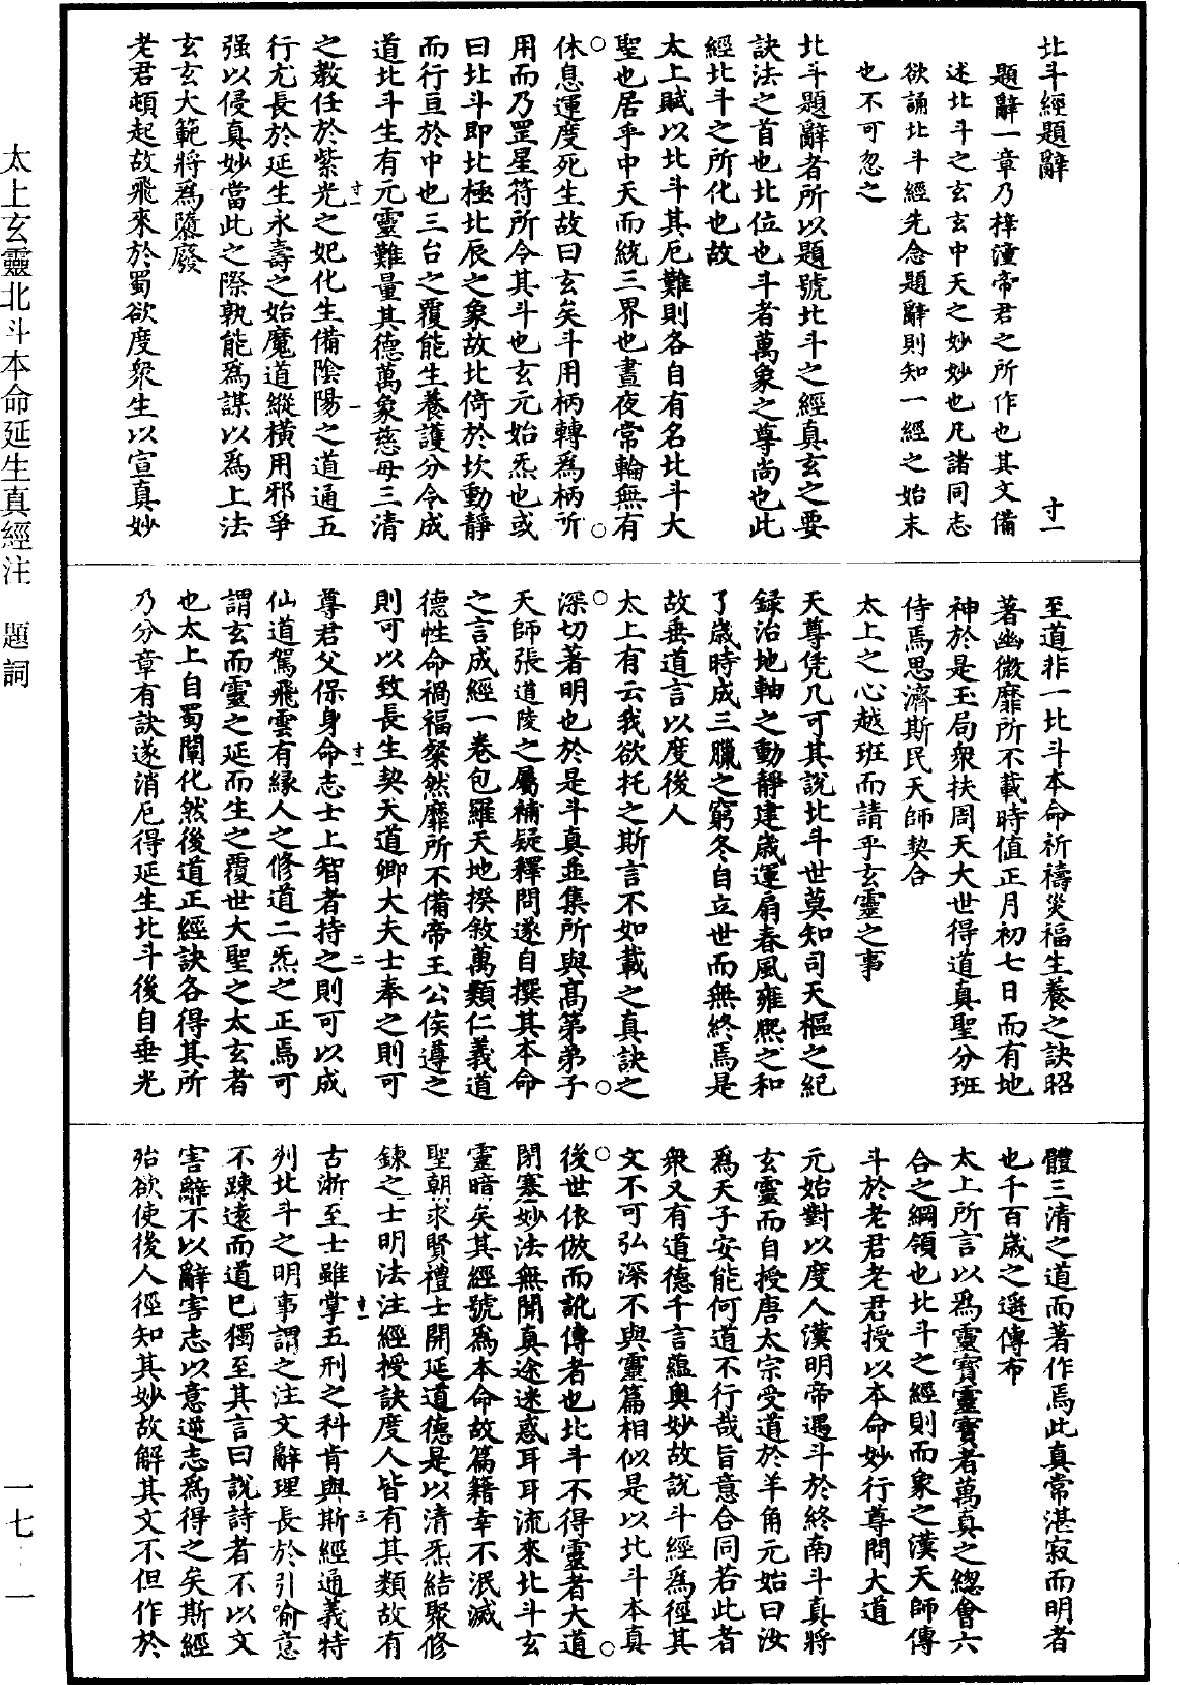 北斗經題辭
寸一
題辭一章乃梓潼帝君之所作也其文備
述北斗之玄玄中天之妙妙也凡諸同志
欲誦北斗經先念題辭則知一經之始末
也不可忽之
北斗題辭者所以題號北斗之經真玄之要
訣法之首也北位也斗者萬象之尊尚也此
經北斗之所化也故
太上賦以北斗其厄難則各自有名北斗大
聖也居乎中天而統三界也晝夜常輪無有
休息運度死生故曰玄矣斗用柄轉爲柄所
用而乃罡星符所令其斗也玄元始炁也或
曰北斗即北極北辰之象故北倚於坎動靜
而行亘於中也三台之覆能生養護分令成
道北斗生有元靈難量其德萬象慈母三清
之教任於紫光之妃化生備陰陽之道通五
行尤長於延生永壽之始魔道縱橫用邪爭
强以侵真妙當此之際孰能爲謀以爲上法
玄玄大範將爲隳廢
老君頓起故飛來於蜀欲度衆生以宣真妙
至道非一北斗本命祈禱災福生養之訣昭
著幽微靡所不載時值正月初七日而有地
神於是玉局衆扶周天大世得道真聖分班
侍焉思濟斯民天師契合
太上之心越班而請乎玄靈之事
天尊凭几可其說北斗世莫知司天樞之紀
録治地軸之動靜建歲運扇春風雍熙之和
了歲時成三臘之窮冬自立世而無終焉是
故垂道言以度後人
太上有云我欲托之斯言不如載之真訣之
深切著明也於是斗真並集所與高第弟子
天師張道陵之屬補疑釋問遂自撰其本命
之言成經一卷包羅天地揆敘萬類仁義道
德性命禍福粲然靡所不備帝王公侯遵之
則可以致長生契天道卿大夫士奉之則可
尊君父保身命志士上智者持之則可以成
仙道駕飛雲有緣人之修道二炁之正焉可
謂玄而靈之延而生之覆世大聖之太玄者
也太上自蜀闡化然後道正經訣各得其所
乃分章有訣遂消厄得延生北斗後自垂光
體三清之道而著作焉此真常湛寂而明者
也千百歲之遥傳布
太上所言以爲靈寶靈寶者萬真之總會六
合之綱領也北斗之經則而象之漢天師傳
斗於老君老君授以本命妙行尊問大道
元始對以度人漢明帝遇斗於終南斗真將
玄靈而自授唐太宗受道於羊角元始曰汝
爲天子安能何道不行哉旨意合同若此者
衆又有道德千言蘊奥妙故說斗經爲徑其
文不可弘深不與靈篇相似是以北斗本真
後世依倣而訛傳者也北斗不得靈者大道
閉塞妙法無聞真途迷惑耳耳流來北斗玄
靈暗矣其經號爲本命故篇籍幸不泯滅
聖朝求賢禮士開延道德是以清炁結聚修
鍊之士明法注經授訣度人皆有其類故有
古淅至士雖掌五刑之科肯與斯經通義特
列北斗之明事謂之注文辭理長於引喻意
不踈遠而道已獨至其言曰說詩者不以文
害辭不以辭害志以意逆志爲得之矣斯經
殆欲使後人徑知其妙故解其文不但作於
太上玄靈北斗本命延生真經注　題詞
一七·一